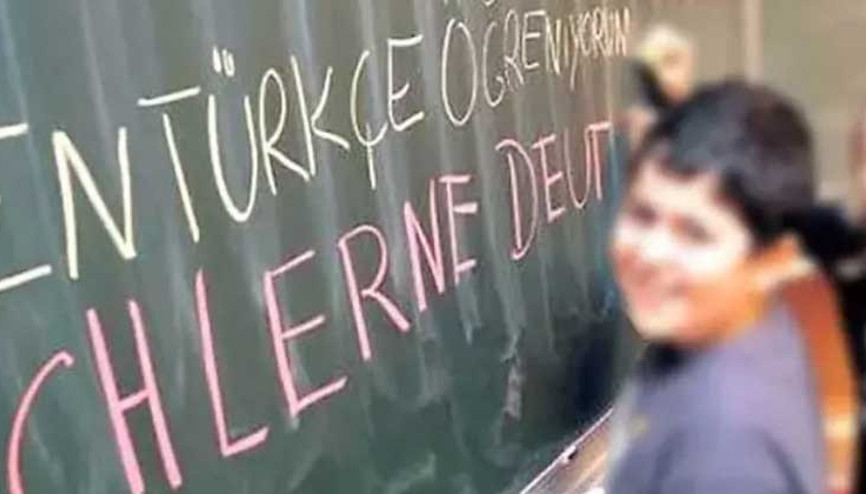 EN TÜRKÇE ÖĞRENİYORUM
CH LERNE DEUT